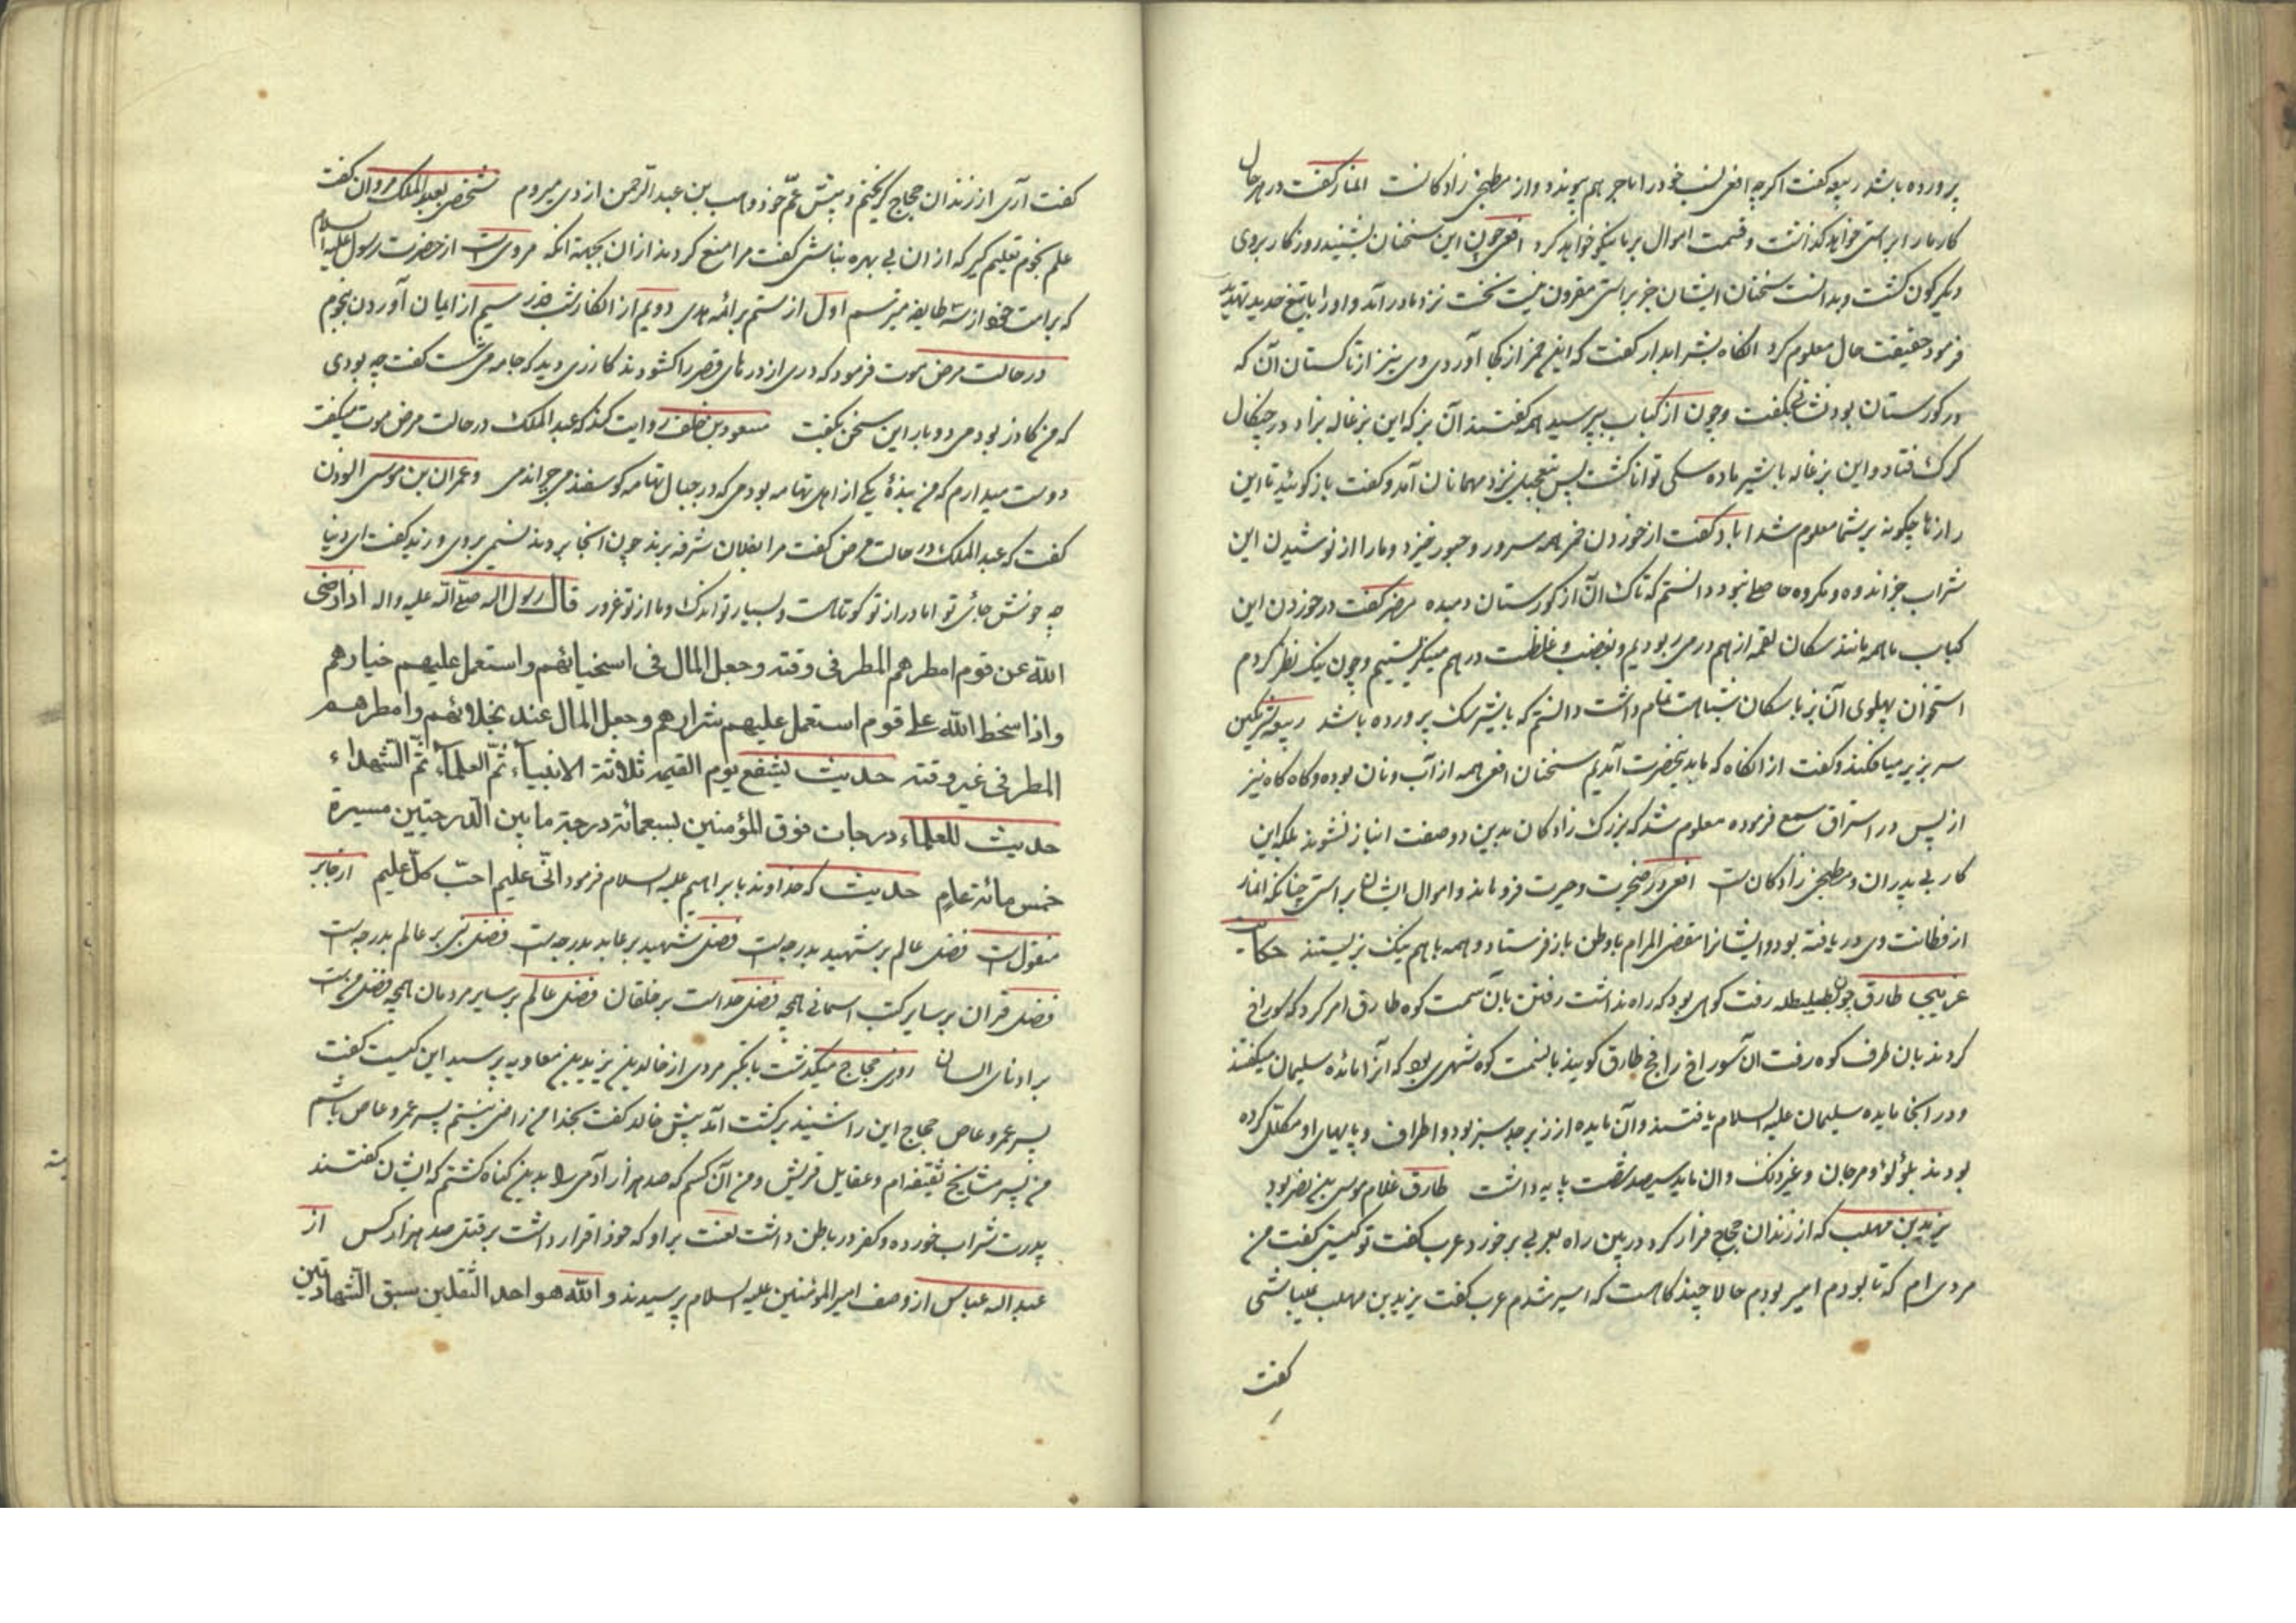 پرورده باشد ربیعه گفت اگرچه افعی نسب خود را با جرهم پیوندد و از مطبخی زادکانست انمار گفت در هر حال
کار ما را براستی خواهد گذاشت و قسمت اموال بر ما نیکو خواهد کرد افعی چون این سخنان بشنید روزگار بر وی
دیگرگون گشت و بدانست سخنان ایشان جز براستی مقرون نیست نخست نزد مادر آمد و او را با تیغ حدید تهدید
فرمود حقیقت حال معلوم کرد آنگاه بشرابدار گفت که این خمر از کجا آوردی وی نیز از تاکستان آن که
در گورستان بود نشان بگفت و چون از کباب بپرسید همه گفتند آن بز که این بزغاله بزاد در چنگال
گرگ فتاد و این بزغاله با شیر ماده سگی توانا گشت پس بتعجیل نزد مهمانان آمد و گفت بازگوئید تا این
رازها چگونه بر شما معلوم شد ایاد گفت از خوردن خمر همه سرور و حبور خیزد و ما را از نوشیدن این
شراب جز اندوه و مکروه حاصل نبود دانستم که تاک آن از گورستان دمیده مضر گفت در خوردن این
کباب ما همه مانند سگان لقمه از هم در می ربودیم و بغضب و غلظت در هم مینگریستیم و چون نیک نظر کردم
استخوان پهلوی آن بز با سگان شباهت تمام داشت دانستم که با شیر سگ پرورده باشد ربیعه شرمگین
سر بزیر میافکند و گفت از آنگاه که ما بدینحضرت آمدیم سخنان افعی همه از آب و نان بوده و گاه گاه نیز
از پس در استراق سمع فرموده معلوم شد که بزرگ زادکان بدین دو صفت انباز نشوند بلکه این
کار بی پدران و مطبخی زادکان است افعی در ضجرت و حیرت فرو ماند و اموال ایشان براستی چنانکه انمار
از فطانت وی دریافته بود و ایشانرا مقضی المرام باوطن باز فرستاد و همه با هم نیک بزیستند حکایت
غریبی طارق چون بطلیطله رفت کوهی بود که راه نداشت رفتن بآن سمت کوه طارق امر کرد که سوراخ
کردند بان طرف کوه رفت آن سوراخ را فج طارق گویند بانسمت کوه شهری بود که آنرا مائده سلیمان میگفتند
و در انجا مایده سلیمان علیه السلام یافتند و آن مایده از زبرجد سبز بود و اطراف و پایهای او مکلل کرده
بودند بلؤلؤ و مرجان و غیرذلک و ان مایده سیصد شصت پایه داشت طارق غلام موسی بن نصر بود
یزید بن مهلب که از زندان حجاج فرار کرد در بین راه بعربی برخورد عرب گفت تو کیستی گفت من
مردی ام که تا بودم امیر بودم حالا چند گاهست که اسیر شدم عرب گفت یزید بن مهلب نباشی
گفت
گفت آری از زندان حجاج گریختم و پیش عم خود وهب بن عبد الرحمن ازدی میروم شخصی بعبد الملک مروان گفت
علم نجوم تعلیم گیر که از ان بی بهره نباشی گفت مرا منع کردند از ان بجهة انکه مرویست از حضرت رسول علیه السلام
که بر امت خود از سه طایفه میترسم اول از ستم بر ائمه هدی دویم از انکار شب قدر سیم از ایمان آوردن بنجوم
در حالت مرض موت فرمود که دری از درهای قصر را گشودند کازری دید که جامه می شست گفت چه بودی
که من کازر بودمی دوباره این سخن بگفت مسعود بن خلف روایت کند که عبد الملک در حالت مرض موت میگفت
دوست میدارم که من بندۀ یکی از اهل تهامه بودمی که در جبال تهامه گوسفند می چراندمی و عمران بن موسی الموذن
گفت که عبد الملک در حالت مرض گفت مرا بفلان شرفه برند چون انجا بردند نسیمی بر وی وزید گفت ای دنیا
چه خوش جائی تو اما دراز تو کوتاهست و بسیار تو اندک و ما از تو غرور قال رسول اله صلی الله علیه واله اذا رضی
الله عن قوم امطرهم المطر فی وقته وجعل المال فی اسخیائهم واستعمل علیهم خیارهم
واذا سخط الله علی قوم استعمل علیهم شرارهم وجعل المال عند بخلائهم وامطرهم
المطر فی غیر وقته حدیث یشفع یوم القیمه ثلاثة الانبیآء ثم العلمآء ثم الشهداء
حدیث للعلماء درجات فوق المؤمنین بسبعمائة درجة ما بین الدرجتین مسیرة
خمس مائة عام حدیث که خداوند با براهیم علیه السلام فرمود انی علیم احب کل علیم از جابر
منقول است فضل عالم بر شهید بدرجه است فضل شهید بر عابد بدرجه است فضل نبی بر عالم بدرجه است
فضل قران بر سایر کتب اسمانی همچه فضل خداست بر خلقان فضل عالم بر سایر مردمان همچه فضل من است
بر ادنای انسان روزی حجاج میگذشت با تکبر مردی از خالد بن یزید بن معاویه پرسید این کیست گفت
پسر عمرو عاص حجاج این را شنید برگشت آمد پیش خالد گفت بخدا من راضی نیستم پسر عمرو عاص باشم
من پسر مشایخ ثقیفه ام و عقایل قریش و من آن کسم که صد هزار آدمی را بدین گناه کشتم که ایشان گفتند
پدرت شراب خورده و کفر در باطن داشت لعنت بر او که خود اقرار داشت بر قتل صد هزار کس از
عبد اله عباس از وصف امیر المؤمنین علیه السلام پرسیدند والله هو احد الثقلین سبق الشهادتین